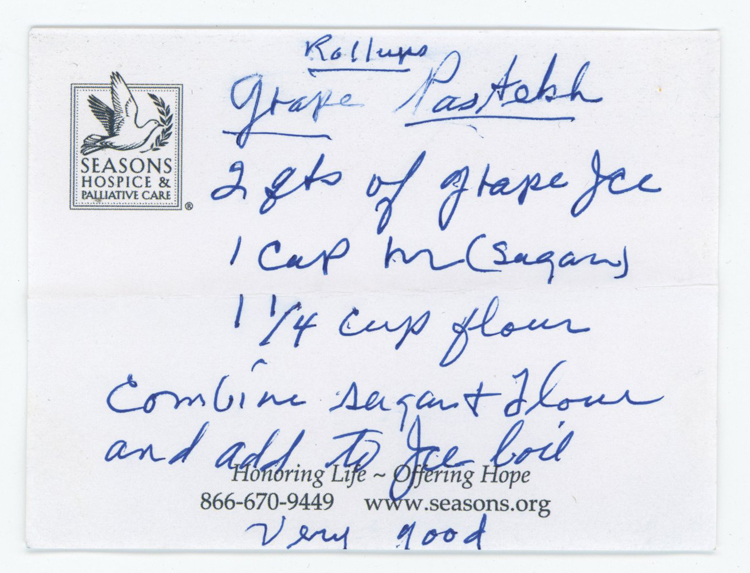 Rollups
Grape Pastebh
2 qts of grape Jce
1 cup or (sugar)
1 1/4 cup flour
Combine sugar + flour
and add to Jce boil
very good
SEASONS
HOSPICE &
PALLIATIVE CARE
®
Honoring Life ~ Offering Hope
866-670-9449 www.seasons.org